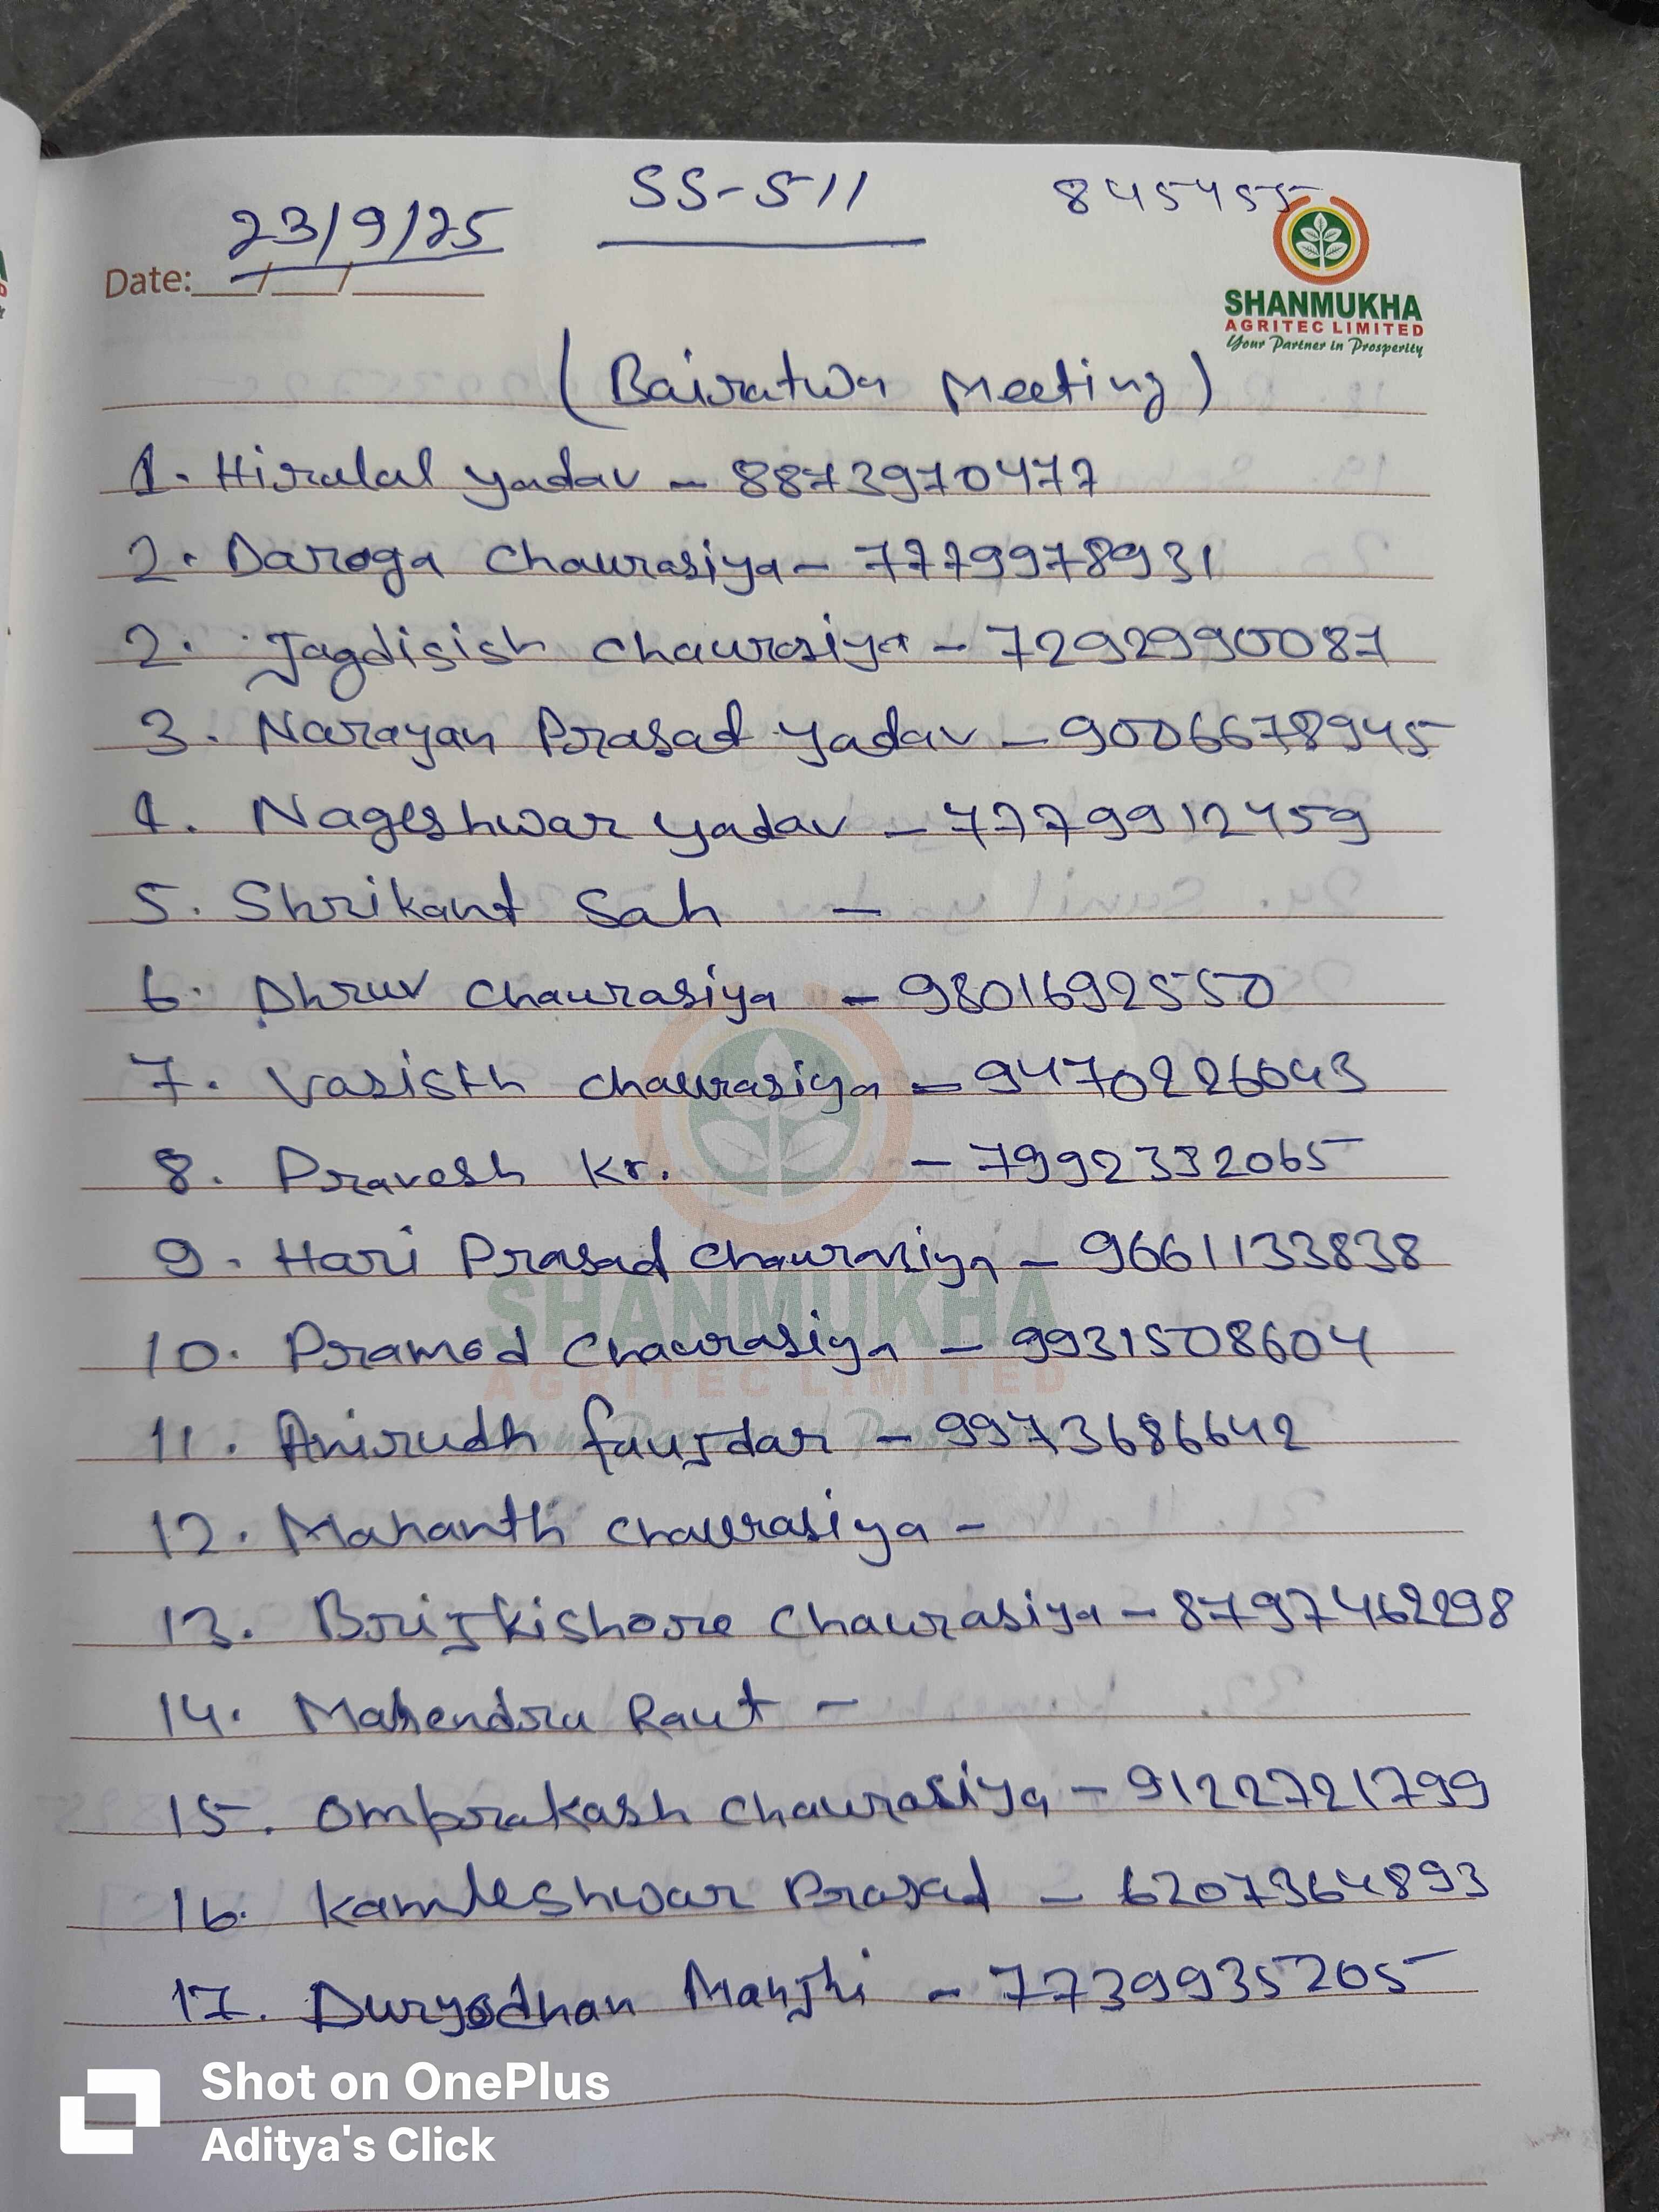 SS-511
845455
23/9/25
Date: __/__/____
SHANMUKHA
AGRITEC LIMITED
Your Partner in Prosperity
(Bairatwa Meeting)
1. Hiralal yadav - 8873970477
2. Daroga Chaurasiya - 7779978931
2. Jagdisish Chaurasiya - 7292990087
3. Narayan Prasad Yadav - 9006678945
4. Nageshwar yadav - 7779912459
5. Shrikant Sah -
6. Dhruv Chaurasiya - 9801692550
7. Vasisth Chaurasiya - 9470226043
8. Pravesh Kr. - 7992332065
9. Hari Prasad Chaurasiya - 9661133838
SHANMUKHA
10. Pramod Chaurasiya - 9931508604
AGRITEC LIMITED
11. Anirudh faujdar - 9973686642
Your Partner in Prosperity
12. Mahanth Chaurasiya -
13. Brijkishore Chaurasiya - 8797462298
14. Mahendra Raut -
15. Omprakash Chaurasiya - 9122721799
16. Kamleshwar Prasad - 6207364893
17. Duryodhan Manjhi - 7739935205
Shot on OnePlus
Aditya's Click